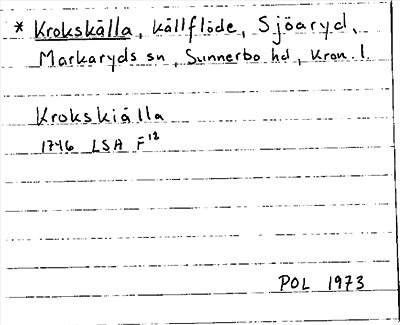 * Krokskälla, källflöde, Sjöaryd.
Markaryds sn, Sunnerbo hd, Kron. l.
Krokskiälla
1746 LSA F¹²
POL 1973